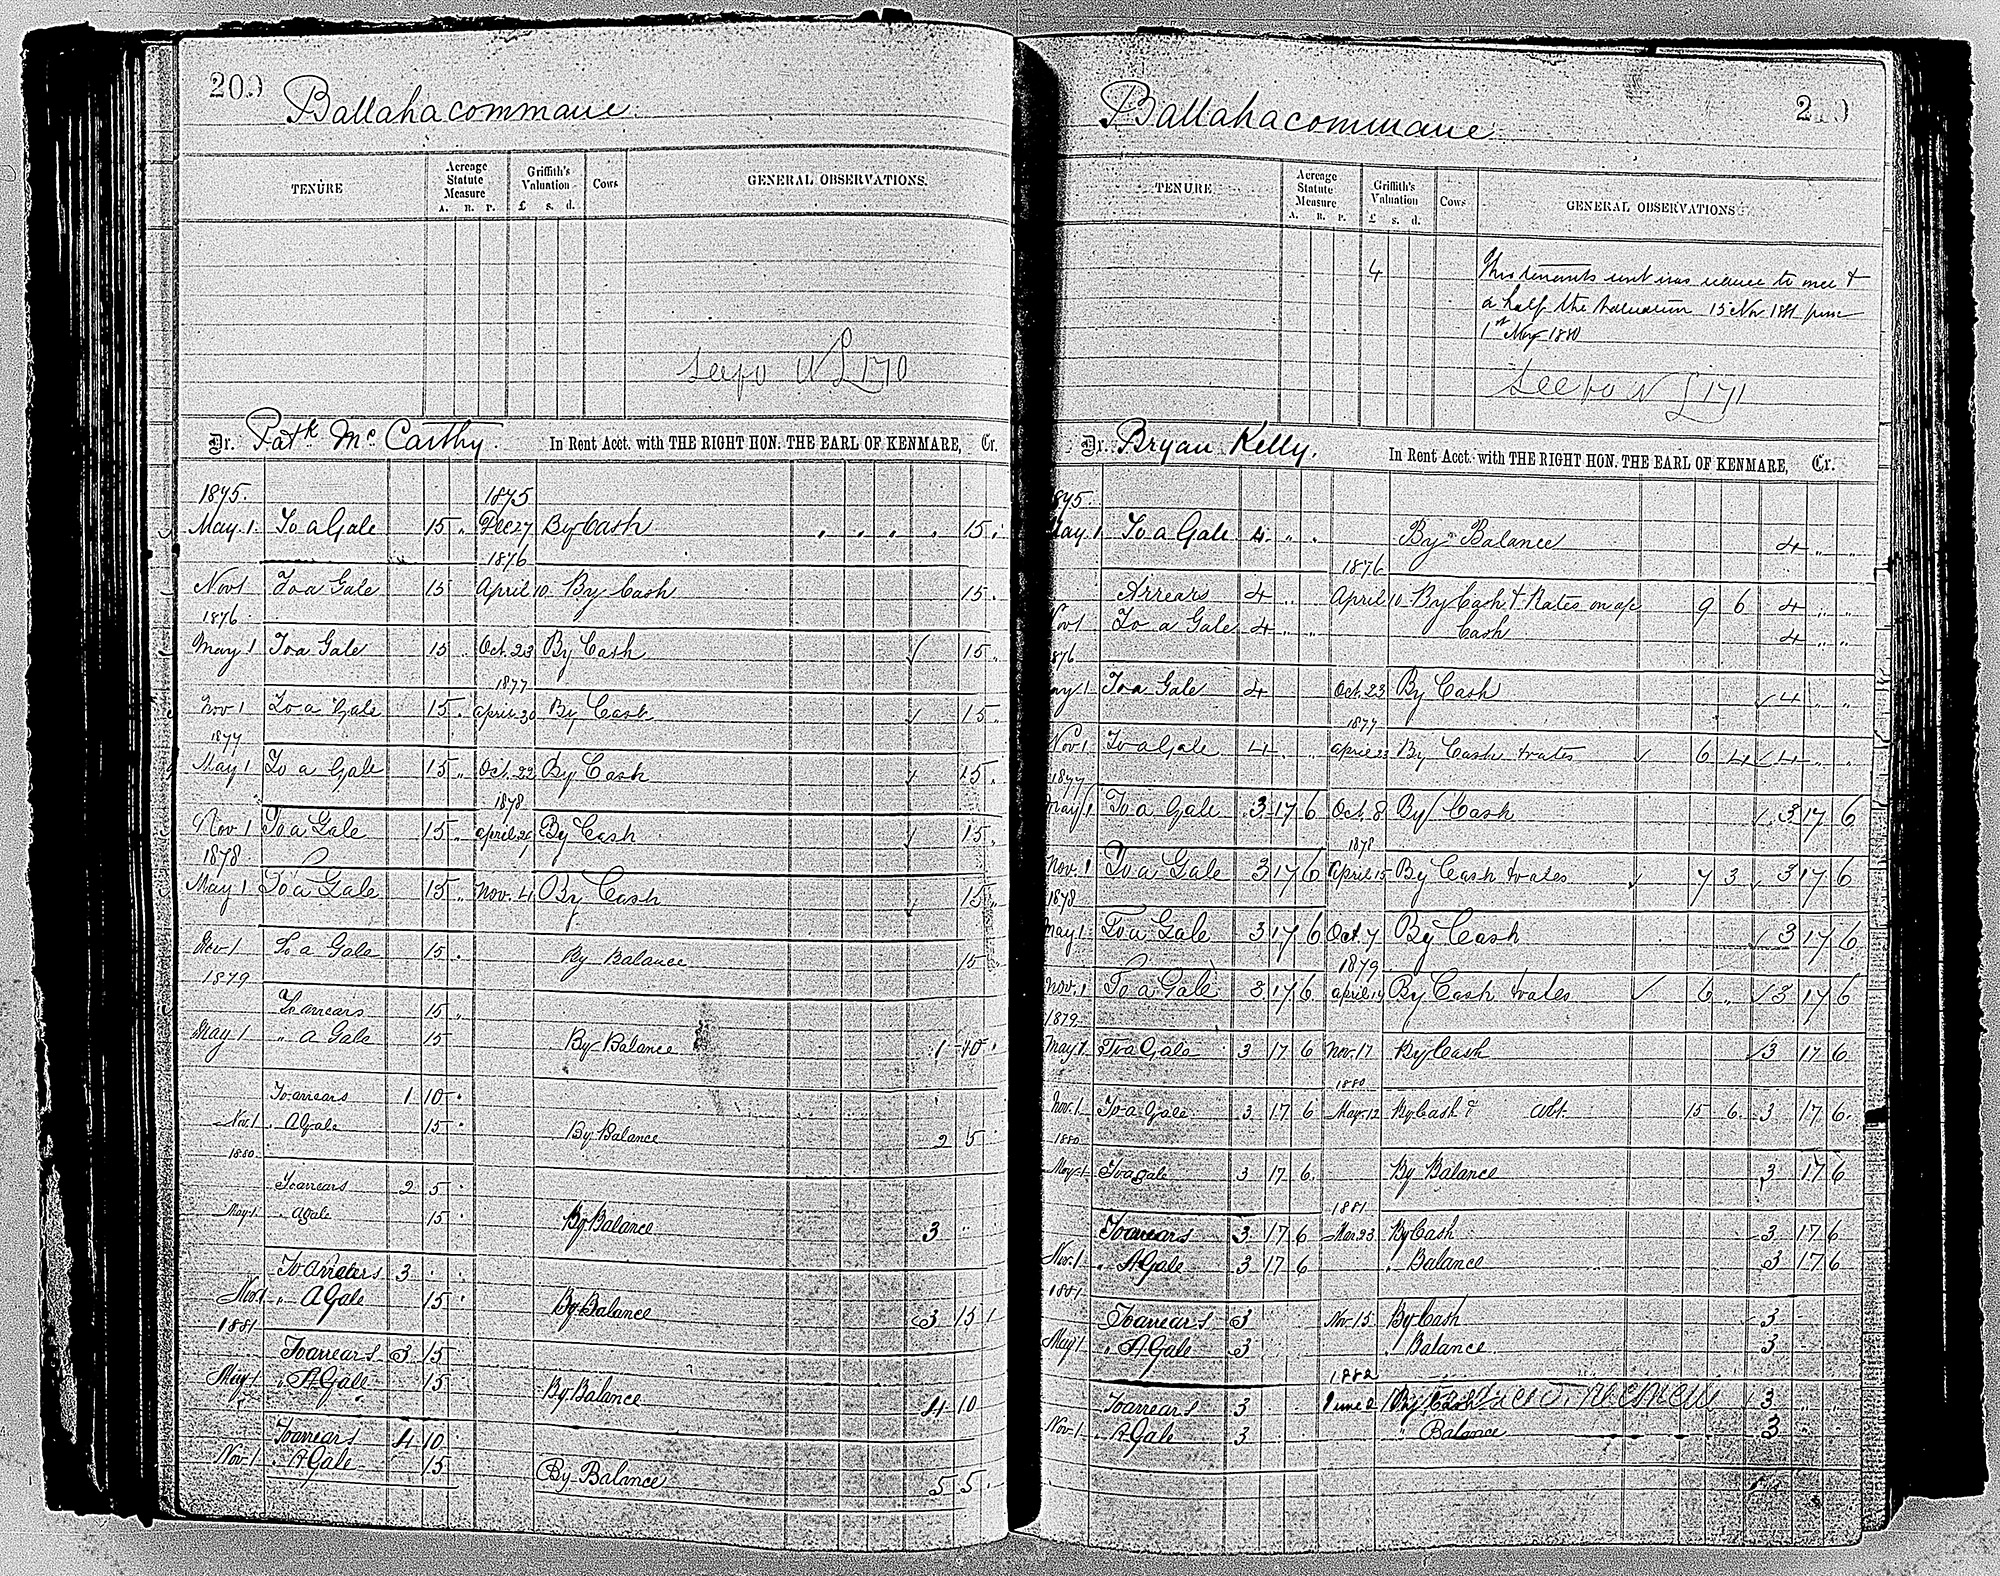 209
Ballahacommane
TENURE
Acreage Statute Measure
A. R. P.
Griffith's Valuation
£ s. d.
Cows
GENERAL OBSERVATIONS.
see fo N L 170
Dr. Patk McCarthy. In Rent Acct. with THE RIGHT HON. THE EARL OF KENMARE, Cr.
1875. 1875
May 1 To a Gale 15 " Dec 27 By Cash " " " " 15 "
1876
Nov 1 To a Gale 15 April 10 By Cash 15 "
1876
May 1 To a Gale 15 " Oct. 23 By Cash 15 "
1877
Nov 1 To a Gale 15 " April 20 By Cash 15 "
1877
May 1 To a Gale 15 " Oct. 22 By Cash 15 "
1878
Nov 1 To a Gale 15 " April By Cash 15 "
1878
May 1 To a Gale 15 " Nov. 4 By Cash 15 "
Nov 1 To a Gale 15 " By Balance 15 "
1879
To arrears 15 "
May 1 " a Gale 15 By Balance 1 10 "
To arrears 1 10 "
Nov. 1 " A Gale 15 " By Balance 2 5 "
1880
To arrears 2 5 "
May 1 " a gale 15 " By Balance 3 " "
To Arrears 3 " "
Nov. 1 " A Gale 15 " By Balance 3 15
1881
To arrears 3 15
May 1 " A Gale 15 By Balance 4 10
To arrears 4 10
Nov. 1 " A Gale 15 By Balance 5 5 "
210
Ballahacommane
TENURE
Acreage Statute Measure
A. R. P.
Griffith's Valuation
£ s. d.
Cows
GENERAL OBSERVATIONS
4 This tenants rent was to one &
a half the Valuation 15 Nov 1881 from
1st May 1880
See fo N L 171
Dr. Bryan Kelly. In Rent Acct. with THE RIGHT HON. THE EARL OF KENMARE, Cr.
1875.
May 1 To a Gale 4 " " By Balance 4 " "
1876
Arrears 4 " April 10 By Cash & Rates on a/c 9 6 4 " "
Nov 1 To a Gale 4 " " Cash 4 " "
1876
May 1 To a Gale 4 Oct 23 By Cash 4 " "
1877
Nov. 1 To a Gale 4 " " April 23 By Cash & rates 6 4 4 " "
1877
May 1 To a Gale 3 17 6 Oct. 8 By Cash 3 17 6
1878
Nov. 1 To a Gale 3 17 6 April 15 By Cash & rates 7 3 3 17 6
1878
May 1 To a Gale 3 17 6 Oct. 7 By Cash 3 17 6
1879
Nov. 1 To a Gale 3 17 6 April By Cash & rates 6 " 3 17 6
1879
May 1 To a Gale 3 17 6 Nov. 17 By Cash 3 17 6
1880
Nov. 1 To a Gale 3 17 6 May 12 By Cash & abt. 15 6 3 17 6
1880
May 1 To a gale 3 17 6 By Balance 3 17 6
1881
To arrears 3 17 6 Mar. 23 By Cash 3 17 6
Nov. 1 " A Gale 3 17 6 " Balance 3 17 6
1881
To arrears 3 Nov. 15 By Cash 3
May 1 " A Gale 3 " Balance 3
1882
To arrears 3 June 2 By Cash 3
Nov. 1 " A Gale 3 " Balance 3